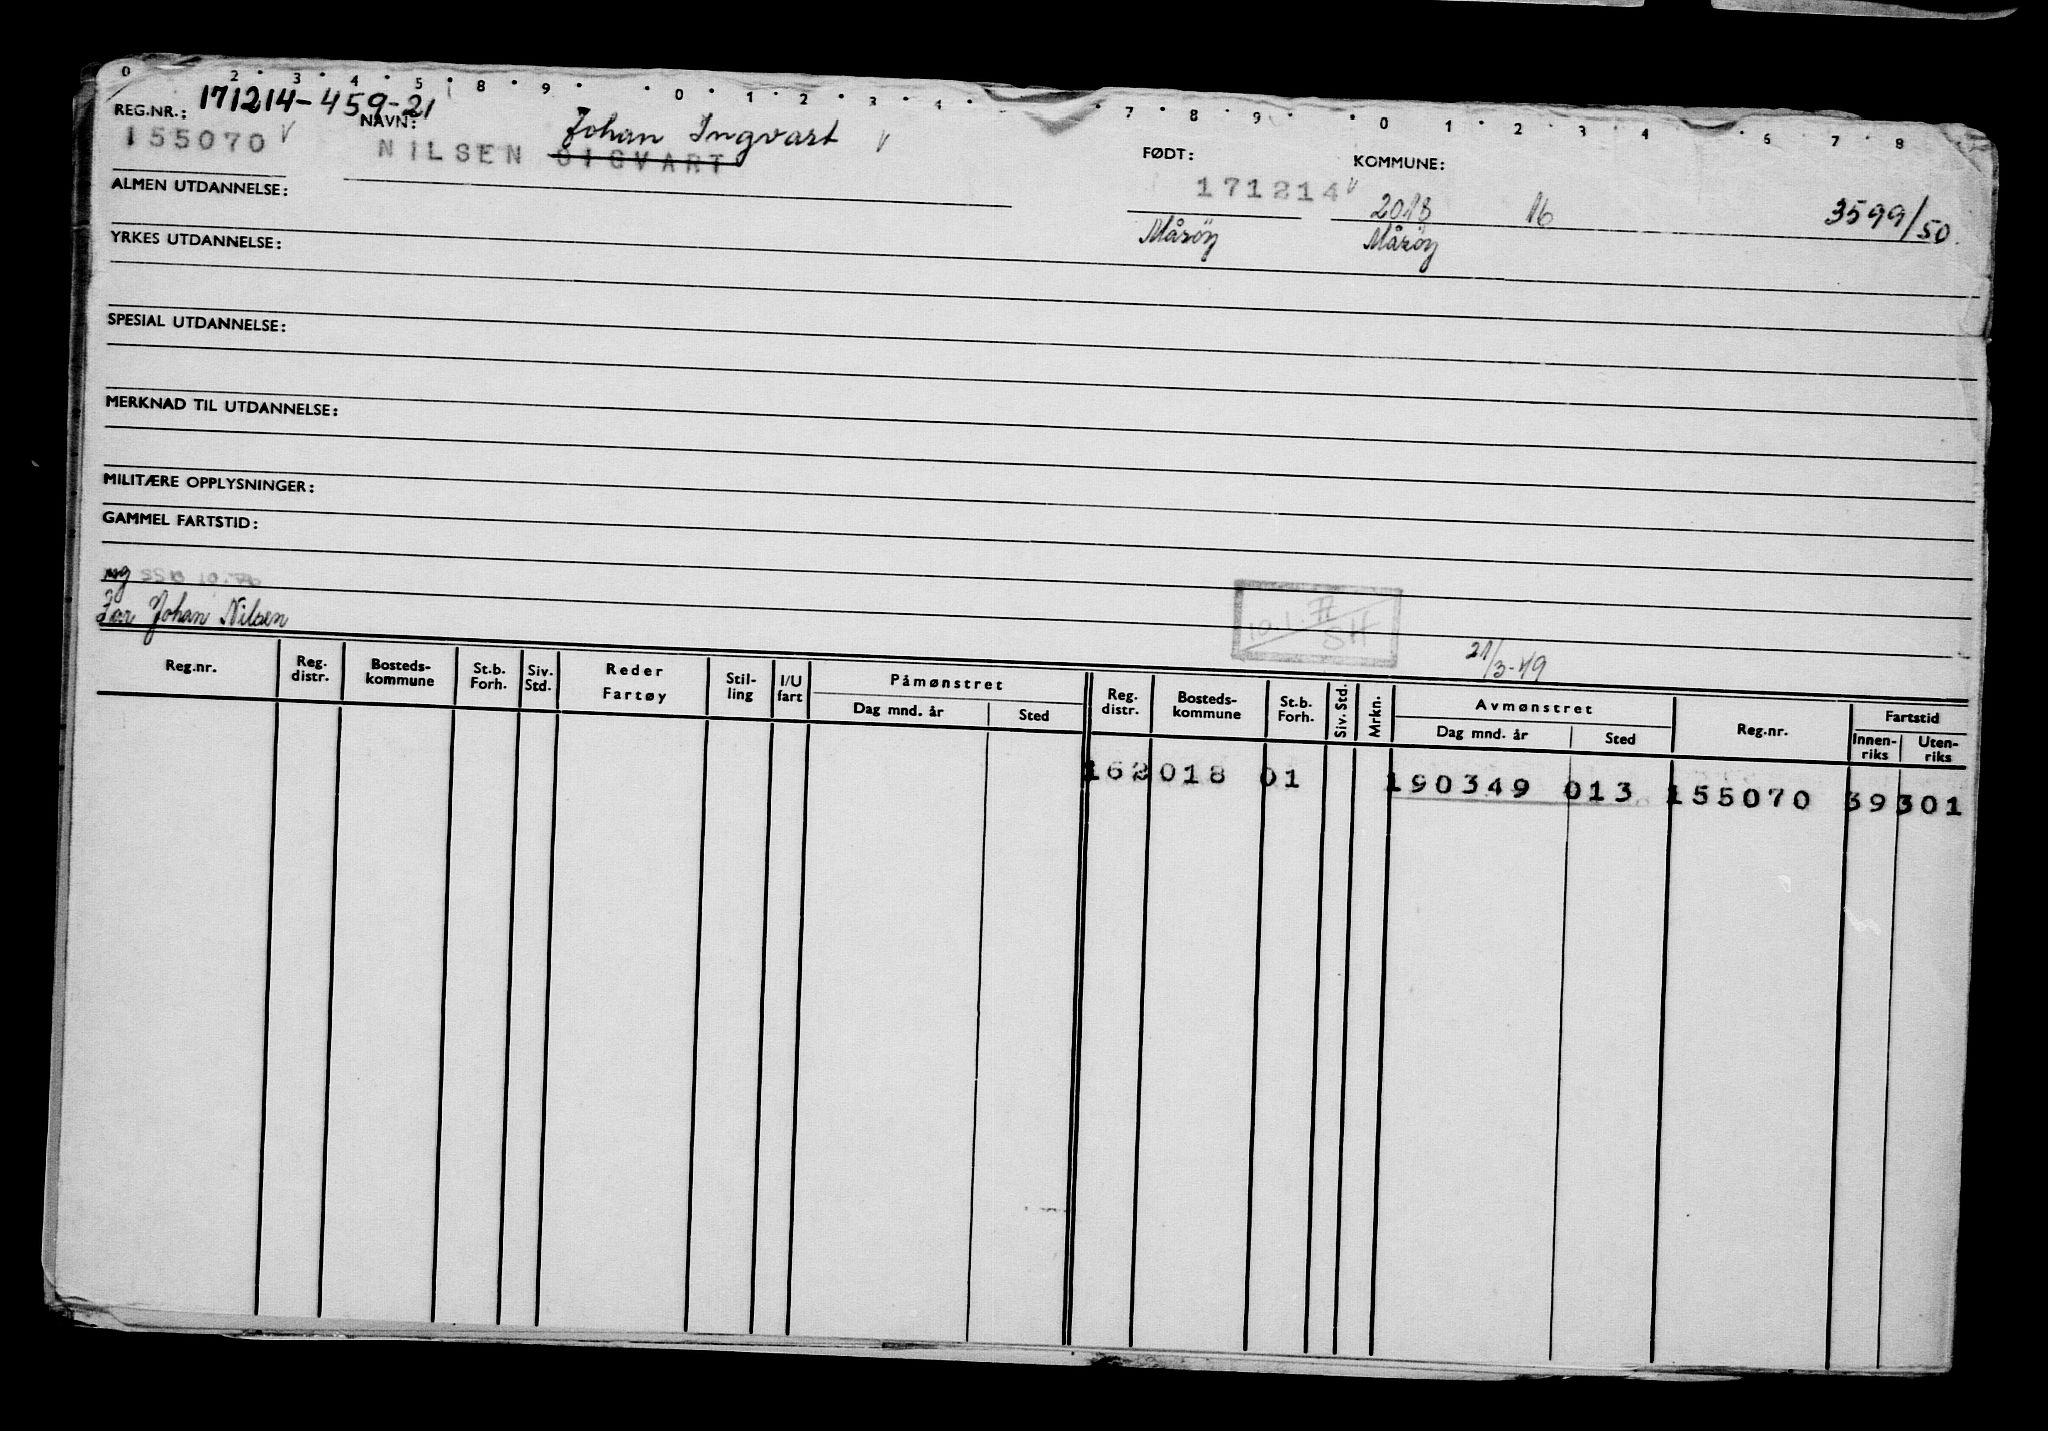 0 2 3 4 5 8 9 0 1 2 3 4 7 8 9 0 1 2 3 4 6 7 8
REG.NR.: 171214-459-21
155070 V NAVN: NILSEN SIGVART Johan Ingvart V FØDT: 171214 V KOMMUNE: 2018 16 3599/50
Måsöy Måsöy
ALMEN UTDANNELSE:
YRKES UTDANNELSE:
SPESIAL UTDANNELSE:
MERKNAD TIL UTDANNELSE:
MILITÆRE OPPLYSNINGER:
GAMMEL FARTSTID:
Far Johan Nilsen
10.1. SH
21/3-49
Reg.nr. Reg. distr. Bosteds-kommune St.b. Forh. Siv. Std. Reder Fartøy Stil-ling I/U fart Påmønstret Dag mnd. år Sted Reg. distr. Bosteds-kommune St.b. Forh. Siv. Std. Mrkn. Avmønstret Dag mnd. år Sted Reg.nr. Fartstid Innen-riks Uten-riks
162018 01 190349 013 155070 39301